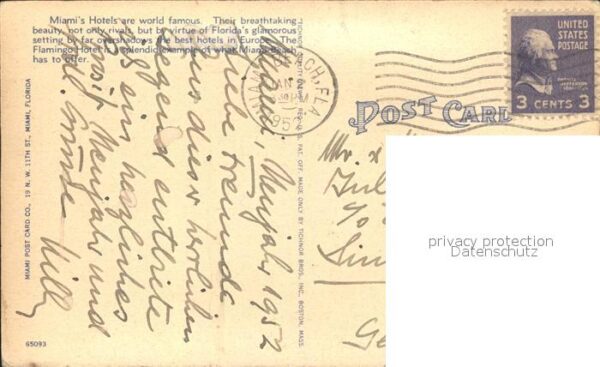 Miami's Hotels are world famous. Their breathtaking
beauty, not only rivals, but by virtue of Florida's glamorous
setting by far overshadows the best hotels in Europe. The
Flamingo Hotel is a splendid example of what Miami Beach
has to offer.
Miami, Neujahr 1952
Liebe Freunde
Aus dieser herrlichen
Gegend entbiete
ein herzliches
Prosit Neujahr und
Willy
MIAMI POST CARD CO., 19 N. W. 11TH ST., MIAMI, FLORIDA
65093
PAT. OFF. MADE ONLY BY TICHNOR BROS., INC., BOSTON, MASS.
MIAMI BEACH, FLA.
PM
195
POST CARD
UNITED
STATES
POSTAGE
3 CENTS 3
Mr.
privacy protection
Datenschutz